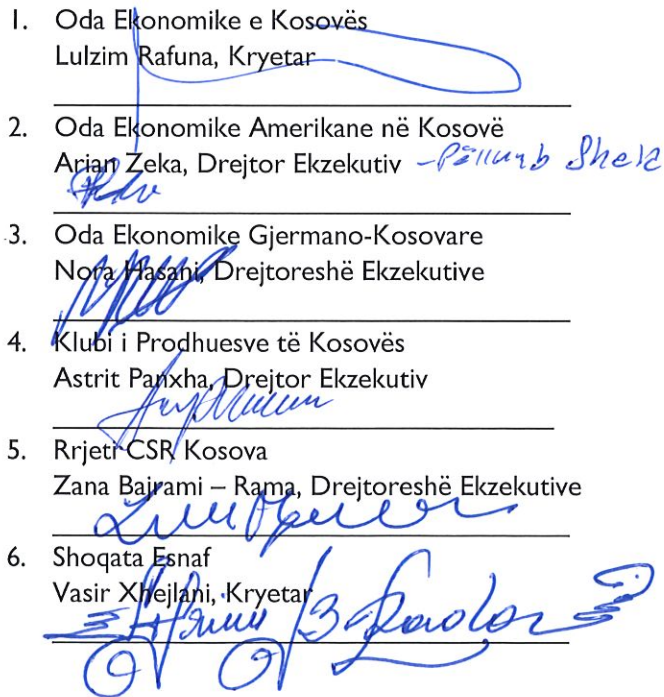 1. Oda Ekonomike e Kosovës
Lulzim Rafuna, Kryetar
2. Oda Ekonomike Amerikane në Kosovë
Arian Zeka, Drejtor Ekzekutiv -Pëllumb
3. Oda Ekonomike Gjermano-Kosovare
Nora Hasani, Drejtoreshë Ekzekutive
4. Klubi i Prodhuesve të Kosovës
Astrit Panxha, Drejtor Ekzekutiv
5. Rrjeti CSR Kosova
Zana Bajrami – Rama, Drejtoreshë Ekzekutive
6. Shoqata Esnaf
Vasir Xhejlani, Kryetar